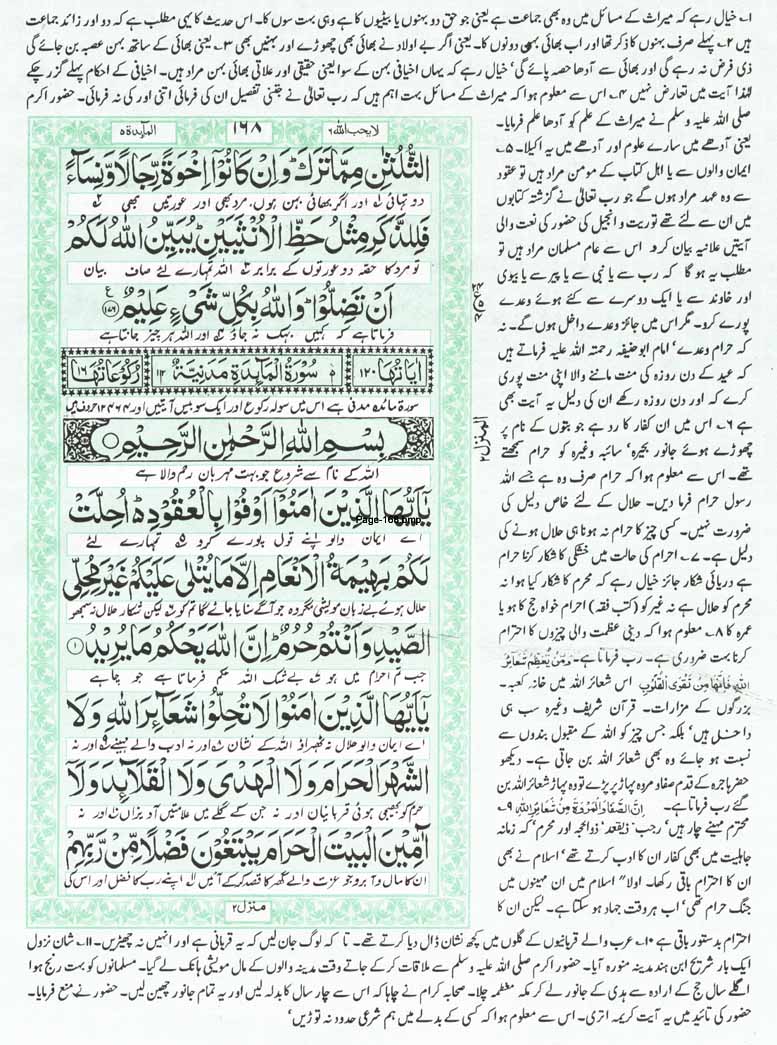 ۱۔ خیال رہے کہ میراث کے مسائل میں وہ بھی جماعت ہے یعنی جو حق دو بہنوں یا بیٹیوں کا ہے وہی بہت سوں کا۔ اس حدیث کا یہی مطلب ہے کہ دو اور زائد جماعت
ہیں ۲۔ پہلے صرف بہنوں کا ذکر تھا اور اب بھائی بہن دونوں کا۔ یعنی اگر بے اولاد نے بھائی بھی چھوڑے اور بہنیں بھی ۳۔ یعنی بھائی کے ساتھ بہن عصبہ بن جائے گی
ذی فرض نہ رہے گی اور بھائی سے آدھا حصہ پائے گی' خیال رہے کہ یہاں اخیافی بہن کے سوا یعنی حقیقی اور علاتی بھائی بہن مراد ہیں۔ اخیافی کے احکام پہلے گزر چکے
لہٰذا آیت میں تعارض نہیں ۴۔ اس سے معلوم ہوا کہ میراث کے مسائل بہت اہم ہیں کہ رب تعالیٰ نے جتنی تفصیل ان کی فرمائی اتنی اور کی نہ فرمائی۔ حضور اکرم
صلی اللہ علیہ وسلم نے میراث کے علم کو آدھا علم فرمایا۔
یعنی آدھے میں سارے علوم اور آدھے میں یہ اکیلا۔ ۵۔
ایمان والوں سے یا اہل کتاب کے مومن مراد ہیں تو عقود
سے وہ عہد مراد ہوں گے جو رب تعالیٰ نے گزشتہ کتابوں
میں ان سے لئے تھے توریت و انجیل کی حضور کی نعت والی
آیتیں علانیہ بیان کرو۔ اس سے عام مسلمان مراد ہیں تو
مطلب یہ ہو گا کہ رب سے یا نبی سے یا پیر سے یا بیوی
اور خاوند سے یا ایک دوسرے سے کئے ہوئے وعدے
پورے کرو۔ مگر اس میں جائز وعدے داخل ہوں گے۔ نہ
کہ حرام وعدے' امام ابو حنیفہ رحمتہ اللہ علیہ فرماتے ہیں
کہ عید کے دن روزہ کی منت ماننے والا اپنی منت پوری
کرے کہ اور دن روزہ رکھے ان کی دلیل یہ آیت بھی
ہے ۶۔ اس میں ان کفار کا رد ہے جو بتوں کے نام پر
چھوڑے ہوئے جانور بحیرہ' سائبہ وغیرہ کو حرام سمجھتے
تھے۔ اس سے معلوم ہوا کہ حرام صرف وہ ہے جسے اللہ
رسول حرام فرما دیں۔ حلال کے لئے خاص دلیل کی
ضرورت نہیں۔ کسی چیز کا حرام نہ ہونا ہی حلال ہونے کی
دلیل ہے۔ ۷۔ احرام کی حالت میں خشکی کا شکار کرنا حرام
ہے دریائی شکار جائز خیال رہے کہ محرم کا شکار کیا ہوا نہ
محرم کو حلال ہے نہ غیر کو (کتب فقہ) احرام خواہ حج کا ہو یا
عمرہ کا ۸۔ معلوم ہوا کہ دینی عظمت والی چیزوں کا احترام
کرنا بہت ضروری ہے۔ رب فرماتا ہے۔ وَمَنْ یُّعَظِّمْ شَعَآئِرَ
اللّٰہِ فَاِنَّھَا مِنْ تَقْوَی الْقُلُوْبِ اس شعائر اللہ میں خانہ کعبہ۔
بزرگوں کے مزارات۔ قرآن شریف وغیرہ سب ہی
داخل ہیں' بلکہ جس چیز کو اللہ کے مقبول بندوں سے
نسبت ہو جائے وہ بھی شعائر اللہ بن جاتی ہے۔ دیکھو
حضرہاجرہ کے قدم صفا و مروہ پہاڑ پر پڑے تو وہ پہاڑ شعائر اللہ بن
گئے رب فرماتا ہے۔ اِنَّ الصَّفَا وَالْمَرْوَۃَ مِنْ شَعَآئِرِ اللّٰہِ ۹۔
محترم مہینے چار ہیں' رجب' ذیقعد' ذوالحجہ اور محرم' کہ زمانہ
جاہلیت میں بھی کفار ان کا ادب کرتے تھے' اسلام نے بھی
ان کا احترام باقی رکھا۔ اولا" اسلام میں ان مہینوں میں
جنگ حرام تھی' اب ہر وقت جہاد ہو سکتا ہے۔ لیکن ان کا
المآئدۃ ۵ ۱۶۸ لایحب اللہ ۶
الثُّلُثٰنِ مِمَّا تَرَكَ ؕ وَاِنْ كَانُوْۤا اِخْوَةً رِّجَالًا وَّنِسَآءً
دو تہائی اور اگر بھائی بہن ہوں، مرد بھی اور عورتیں بھی
فَلِلذَّكَرِ مِثْلُ حَظِّ الْاُنْثَيَيْنِ ؕ يُبَيِّنُ اللّٰهُ لَكُمْ
تو مرد کا حصّہ دو عورتوں کے برابر اللہ تمہارے لئے صاف بیان
اَنْ تَضِلُّوْا ؕ وَاللّٰهُ بِكُلِّ شَيْءٍ عَلِيْمٌ ۱۷۶
فرماتا ہے کہ کہیں بہک نہ جاؤ اور اللہ ہر چیز جانتا ہے
اٰيَاتُهَا ۱۲۰ ۵ سُوْرَةُ الْمَآئِدَةِ مَدَنِيَّةٌ ۱۱۲ رُكُوْعَاتُهَا ۱۶
سورۃ مائدہ مدنی ہے اس میں سولہ رکوع اور ایک سو بیس آیتیں اور ۱۲۴۶۴ حروف ہیں
بِسْمِ اللّٰهِ الرَّحْمٰنِ الرَّحِيْمِ
اللہ کے نام سے شروع جو بہت مہربان رحم والا ہے
يٰۤاَيُّهَا الَّذِيْنَ اٰمَنُوْۤا اَوْفُوْا بِالْعُقُوْدِ ؕ اُحِلَّتْ
Page-168.bmp
اے ایمان والو اپنے قول پورے کرو تمہارے لئے
لَكُمْ بَهِيْمَةُ الْاَنْعَامِ اِلَّا مَا يُتْلٰى عَلَيْكُمْ غَيْرَ مُحِلِّي
حلال ہوئے بے زبان مویشی مگر وہ جو آگے سنایا جائے گا تم کو لیکن شکار حلال نہ سمجھو
الصَّيْدِ وَاَنْتُمْ حُرُمٌ ؕ اِنَّ اللّٰهَ يَحْكُمُ مَا يُرِيْدُ ۱
جب تم احرام میں ہو بے شک اللہ حکم فرماتا ہے جو چاہے
يٰۤاَيُّهَا الَّذِيْنَ اٰمَنُوْا لَا تُحِلُّوْا شَعَآئِرَ اللّٰهِ وَلَا
اے ایمان والو حلال نہ ٹھہرالو اللہ کے نشان اور نہ ادب والے مہینے اور نہ
الشَّهْرَ الْحَرَامَ وَلَا الْهَدْيَ وَلَا الْقَلَآئِدَ وَلَاۤ
حرم کو بھیجی ہوئی قربانیاں اور نہ جن کے گلے میں علامتیں آویزاں اور نہ
آٰمِّيْنَ الْبَيْتَ الْحَرَامَ يَبْتَغُوْنَ فَضْلًا مِّنْ رَّبِّهِمْ
ان کا مال و آبرو جو عزت والے گھر کا قصد کرکے آئیں اپنے رب کا فضل اور اس کی
منزل ۲
المنزل ۲
احترام بدستور باقی ہے ۱۰۔ عرب والے قربانیوں کے گلوں میں کچھ نشان ڈال دیا کرتے تھے۔ تا کہ لوگ جان لیں کہ یہ قربانی ہے اور انہیں نہ چھیڑیں۔ ۱۱۔ شان نزول
ایک بار شریح ابن ہند مدینہ منورہ آیا۔ حضور اکرم صلی اللہ علیہ و سلم سے ملاقات کر کے جاتے وقت مدینہ والوں کے مال مویشی ہانک لے گیا۔ مسلمانوں کو بہت رنج ہوا
اگلے سال حج کے ارادہ سے ہدی کے جانور لے کر مکہ معظمہ چلا۔ صحابہ کرام نے چاہا کہ اس سے چار سال کا بدلہ لیں اور یہ تمام جانور چھین لیں۔ حضور نے منع فرمایا۔
حضور کی تائید میں یہ آیت کریمہ اتری۔ اس سے معلوم ہوا کہ کسی کے بدلے میں ہم شرعی حدود نہ توڑیں'